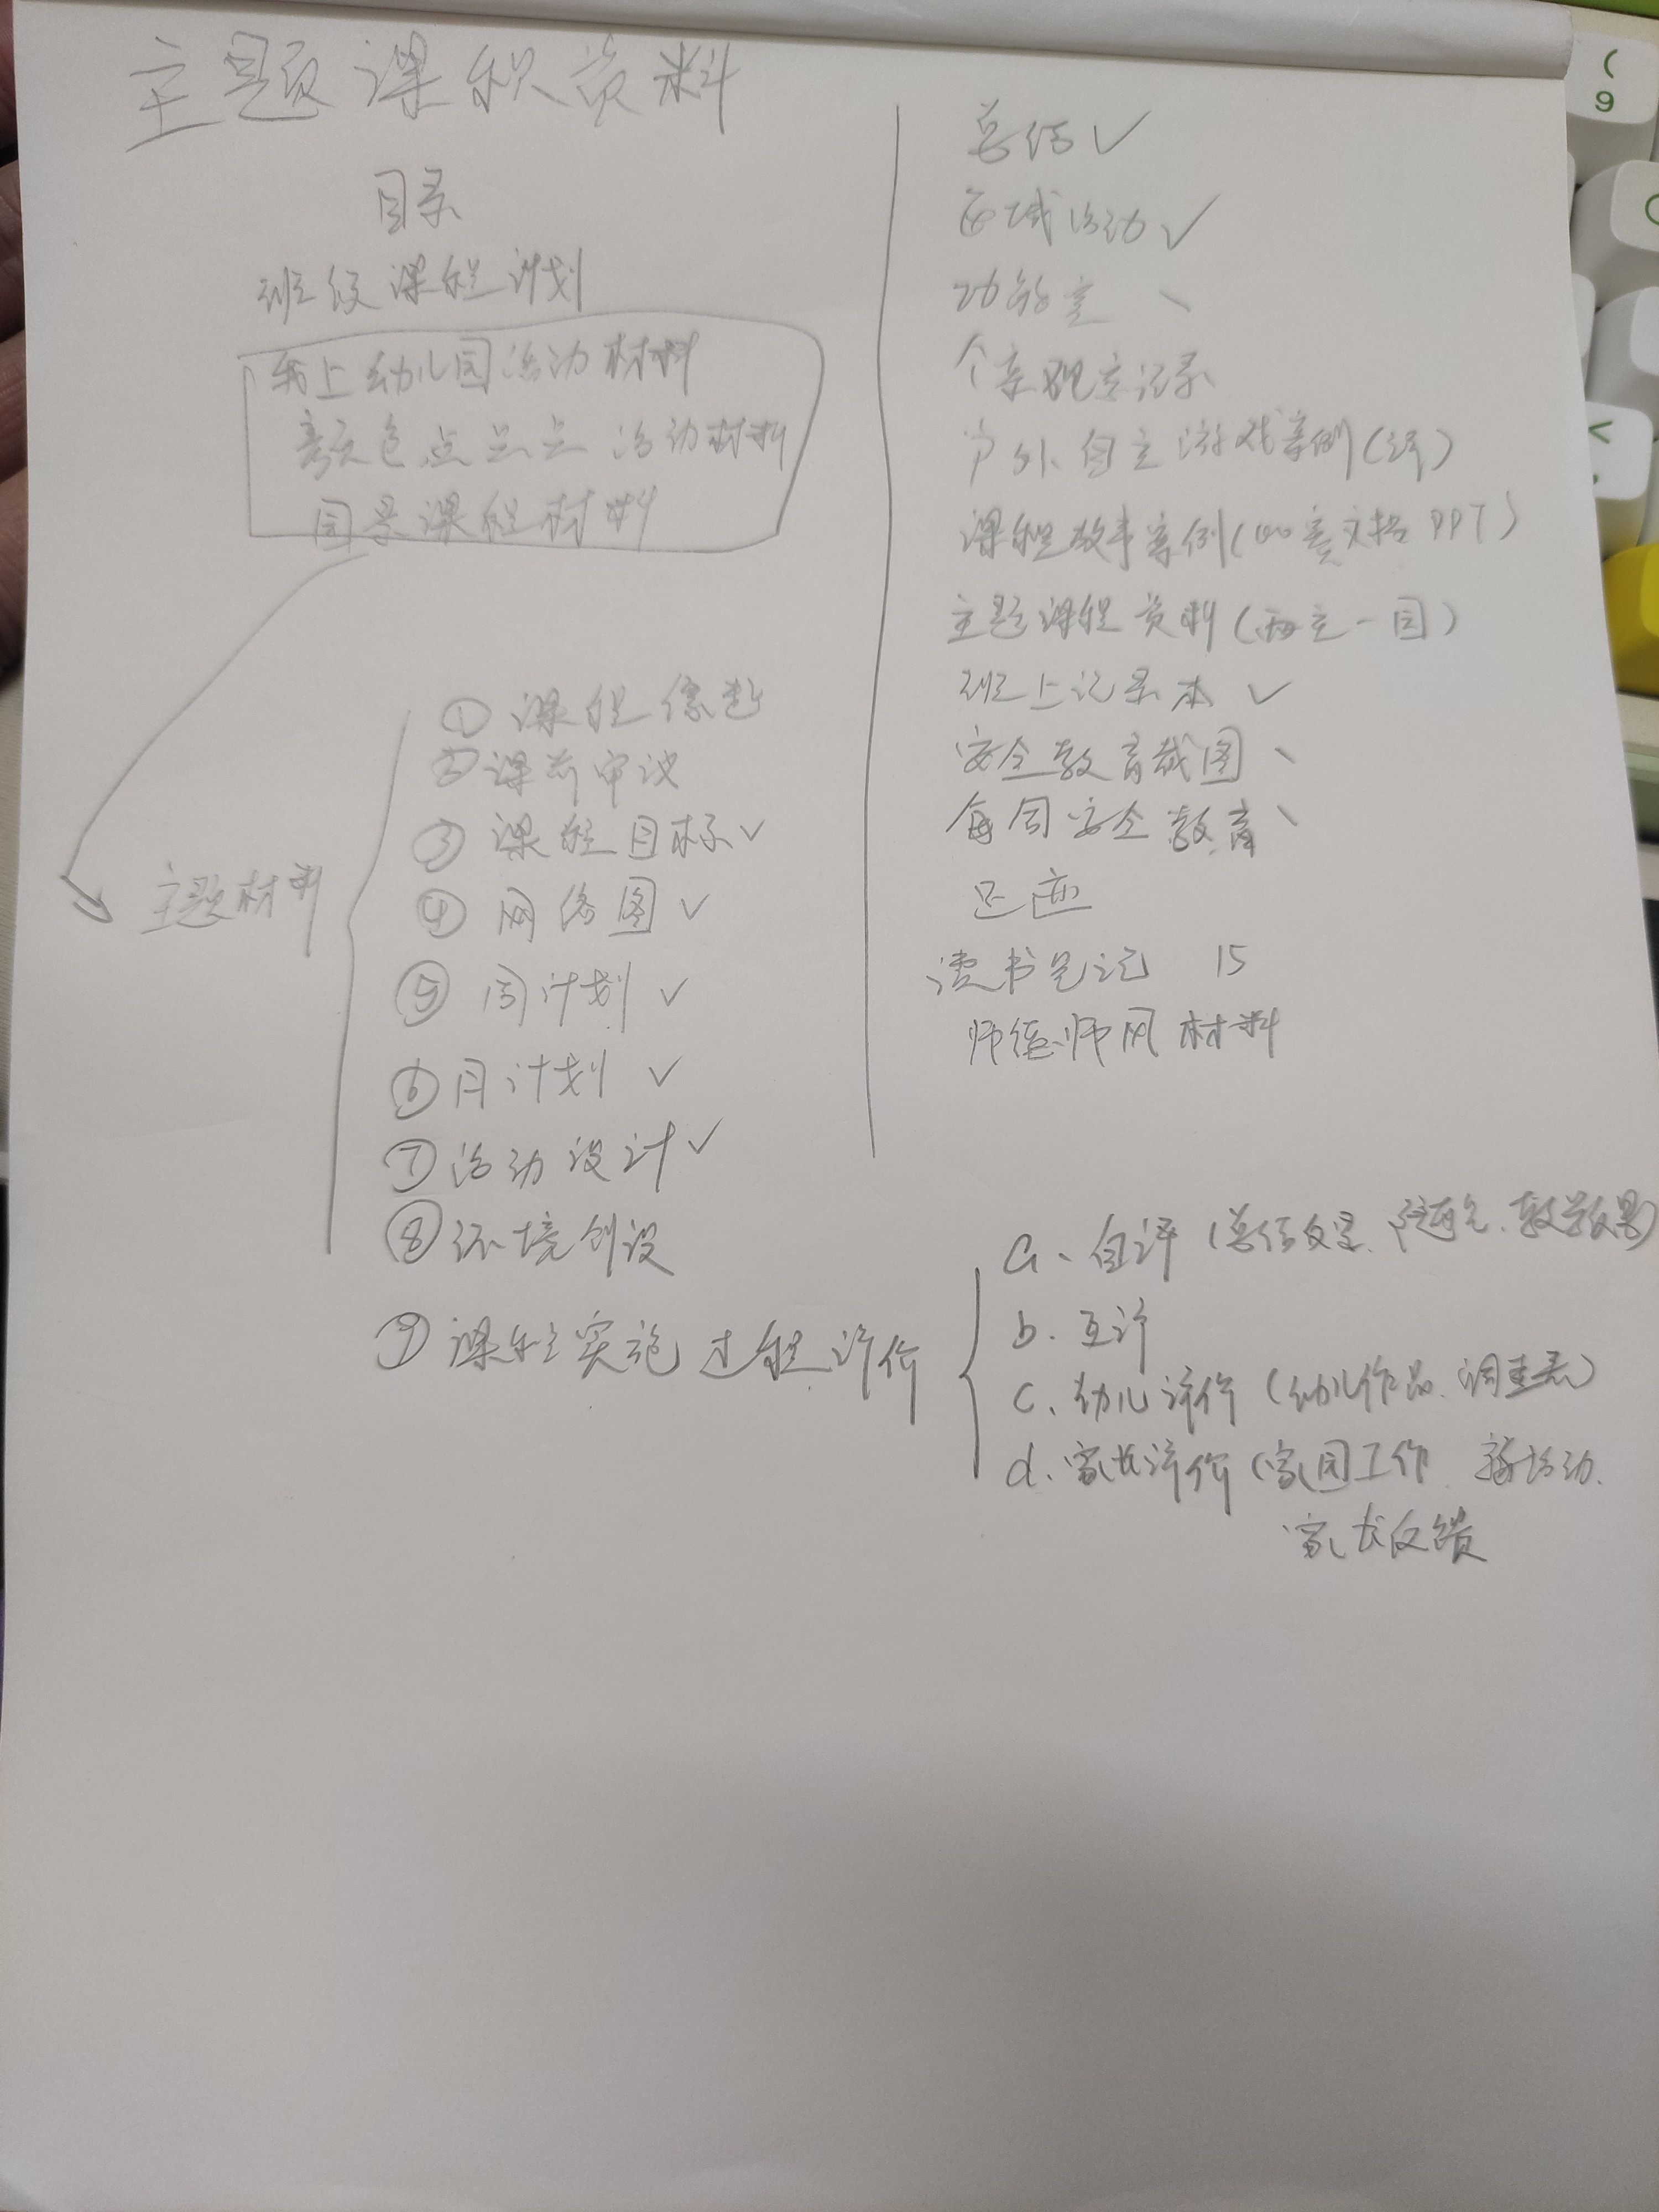 主题课程资料
目录
班级课程计划
我上幼儿园活动材料
颜色点点点活动材料
园景课程材料
主题材料
① 课程缘起
② 课前审议
③ 课程目标✓
④ 网络图✓
⑤ 周计划✓
⑥ 月计划✓
⑦ 活动设计✓
⑧ 环境创设
⑨ 课程实施过程评价
总结✓
区域活动✓
个案观察记录
户外自主游戏案例(评)
课程故事案例(文格PPT)
主题课程资料(一园)
班上记录本✓
安全教育截图、
每周安全教育、
足迹
读书笔记 15
师德师风材料
a、自评(总结反思、随笔、教学效果)
b. 互评
c、幼儿评价(幼儿作品、调查表)
d. 家长评价(家园工作 活动、
家长反馈
(
9
<